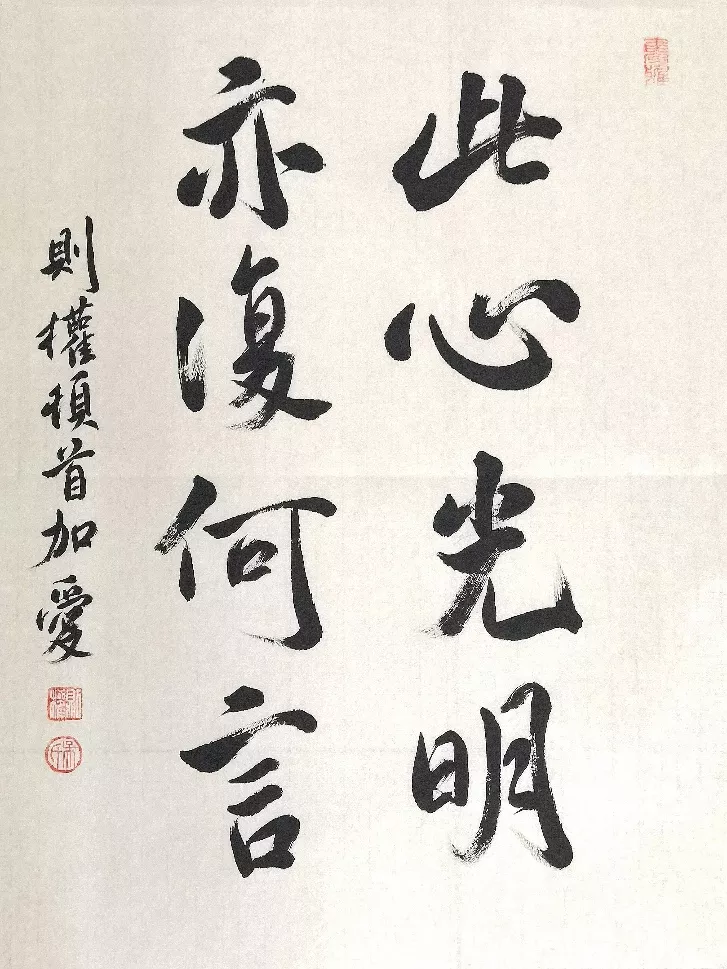 此心光明
亦復何言
則權頓首加愛